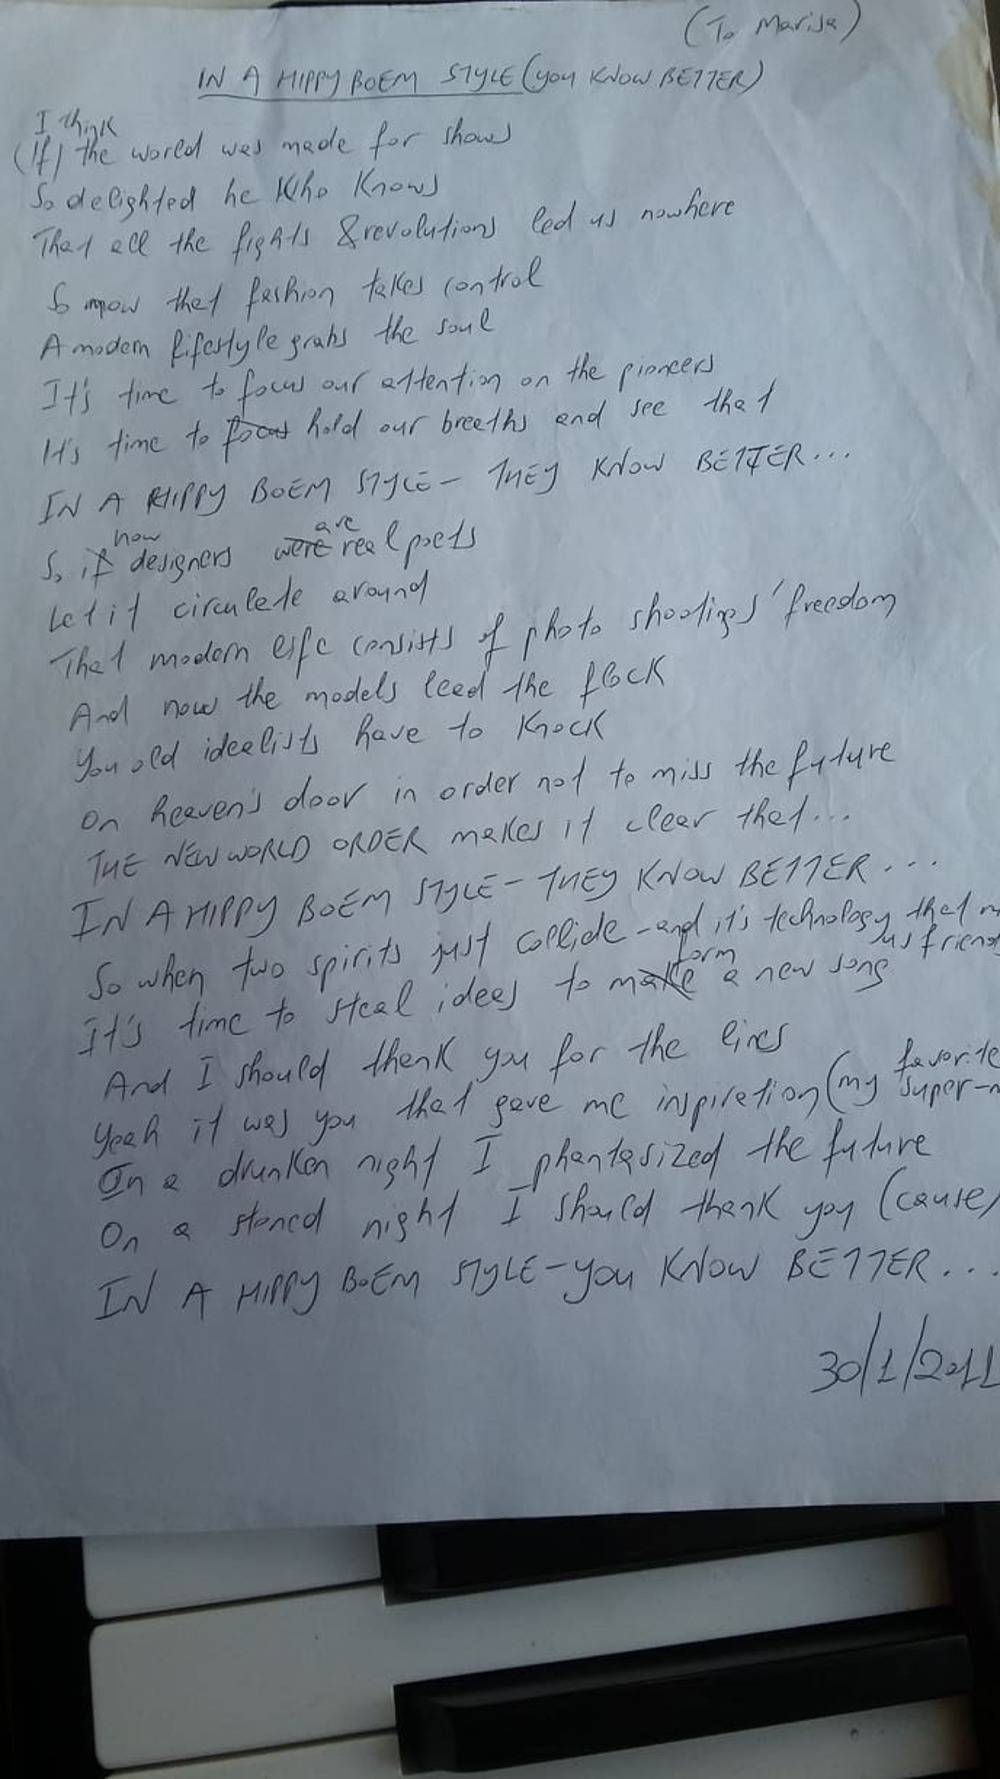 (To Marisa)
IN A HIPPY BOEM STYLE (you KNOW BETTER)
I think
(If) the world was made for shows
So delighted he who knows
That all the fights & revolutions led us nowhere
So now that fashion takes control
A modern lifestyle grabs the soul
It's time to focus our attention on the pioneers
It's time to focus hold our breaths and see that
IN A HIPPY BOEM STYLE - THEY KNOW BETTER...
now are
So if designers were real poets
Let it circulate around
That modern life consists of photo shootings' freedom
And now the models lead the flock
You old idealists have to knock
On heaven's door in order not to miss the future
THE NEW WORLD ORDER makes it clear that...
IN A HIPPY BOEM STYLE - THEY KNOW BETTER...
So when two spirits just collide - and it's technology that
us
form
It's time to steal ideas to make a new song
And I should thank you for the lines
favorite
Yeah it was you that gave me inspiration (my super-
On a drunken night I phantasized the future
On a stoned night I should thank you (cause)
IN A HIPPY BOEM STYLE - you KNOW BETTER...
30/1/2011